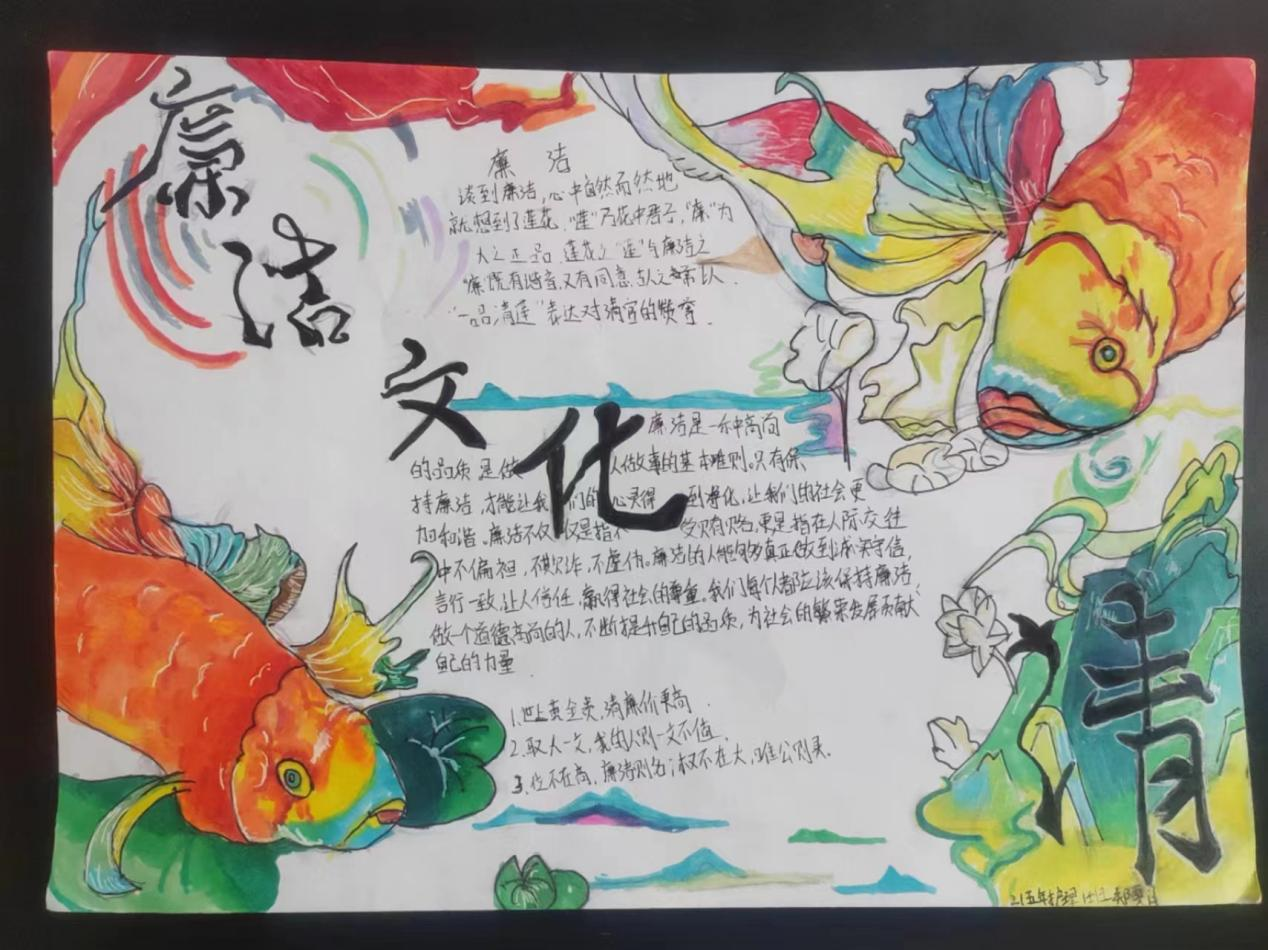 廉洁
文化
清
廉 洁
谈到廉洁,心中自然而然地
就想到了莲花,"莲"乃花中君子,"廉"为
人之正品,莲花之"莲"与廉洁之
"廉"既有谐音,又有同意,古人以
"一品清莲"表达对清官的赞赏.
廉洁是一种高尚
的品质,是做人做事的基本准则。只有保
持廉洁,才能让我们的心灵得到净化,让我们的社会更
加和谐。廉洁不仅仅是指不受贿赂,更是指在人际交往
中不偏袒,不欺诈,不虚伪。廉洁的人能够真正做到诚实守信,
言行一致,让人信任,赢得社会的尊重。我们每个人都应该保持廉洁,
做一个道德高尚的人,不断提升自己的品质,为社会的繁荣发展贡献
自己的力量.
1.世上黄金贵,清廉价更高.
2.取人一文,我的人则一文不值.
3.位不在高,廉洁则名;权不在大,唯公则灵.
五年护理